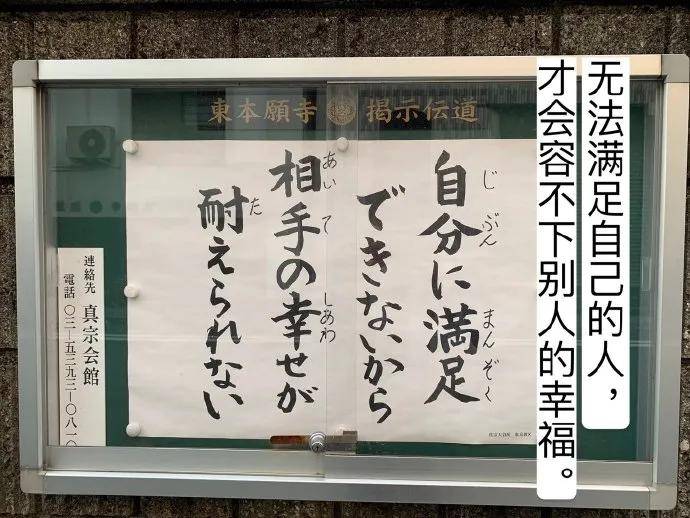 東本願寺 掲示伝道
自分に満足
じぶん まんぞく
できないから
相手の幸せが
あいて しあわ
耐えられない
た
連絡先 真宗会館
電話 〇三―五三九三―〇八一〇
无法满足自己的人，
才会容不下别人的幸福。